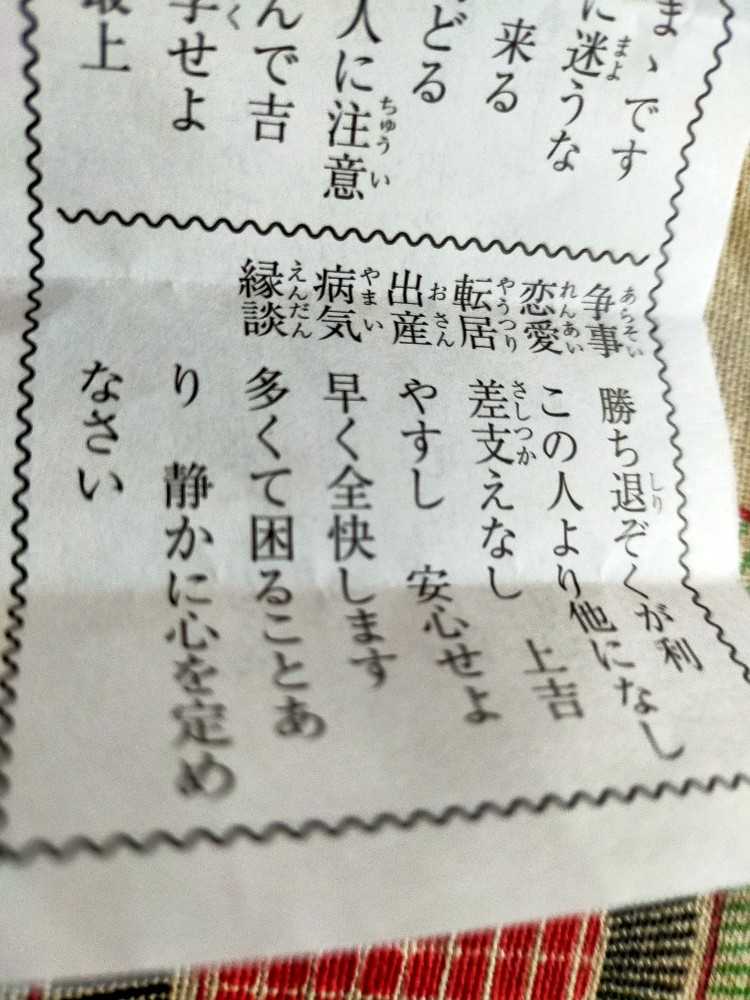 まゝです
に迷うな
来る
どる
人に注意
んで吉
せよ
最上
争事 勝ち退ぞくが利
恋愛 この人より他になし
転居 差支えなし 上吉
出産 やすし 安心せよ
病気 早く全快します
縁談 多くて困ることあ
り 静かに心を定め
なさい